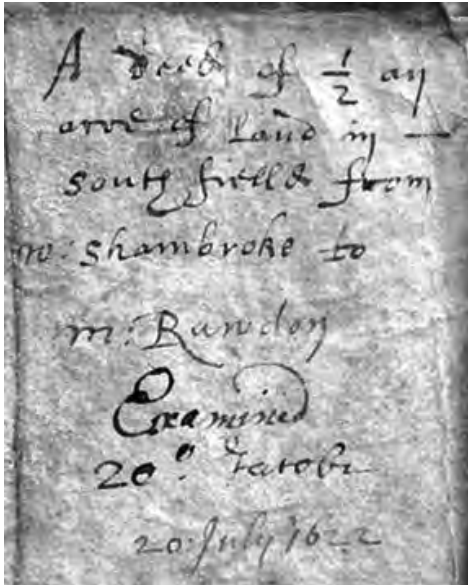 A deed of ½ an
acre of land in —
south fielde from
m: Shambroke to
m: Rawdon
Examined
20º. Jacobi
20 July 1622